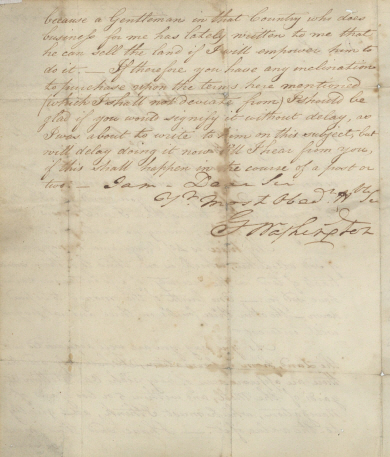 because a Gentleman in that Country who does
business for me has lately written to me that
he can sell the land if I will empower him to
do it. — If therefore you have any inclination
to purchase upon the terms here mentioned
(which I shall not deviate from) I should be
glad if you would signify it without delay, as
I was about to write to him on this subject, but
will delay doing it now till I hear from you,
if this shall happen in the course of a post or
two. — I am - Dear Sir
Yr. Most Obedt. H
G Washington